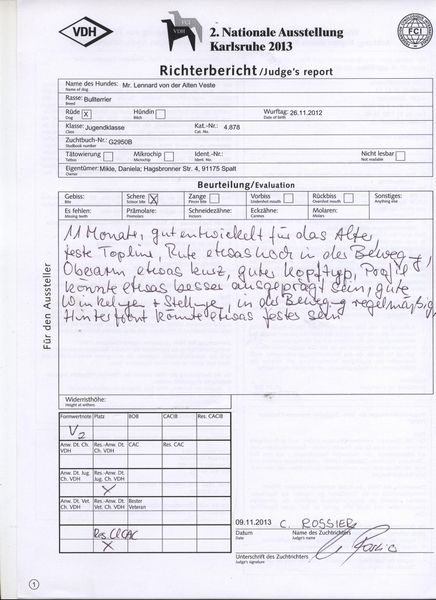 VDH
FCI
VDH
2. Nationale Ausstellung
Karlsruhe 2013
FCI
Richterbericht/Judge's report
Name des Hundes: Mr. Lennard von der Alten Veste
Name of dog
Rasse: Bullterrier
Breed
Rüde X Hündin Wurftag: 26.11.2012
Dog Bitch Date of birth
Klasse: Jugendklasse Kat.-Nr.: 4.878
Class Cat. No.
Zuchtbuch-Nr.: G2950B
Studbook number
Tätowierung Mikrochip Ident.-Nr.: Nicht lesbar
Tattoo Microchip Ident. No. Not readable
Eigentümer: Mikle, Daniela; Hagsbronner Str. 4, 91175 Spalt
Owner
Beurteilung/Evaluation
Gebiss: Schere X Zange Vorbiss Rückbiss Sonstiges:
Bite Scissor bite Pincer bite Undershot mouth Overshot mouth Anything else
Es fehlen: Prämolare: Schneidezähne: Eckzähne: Molaren:
Missing teeth Premolars Incisors Canines Molars
11 Monate, gut entwickelt für das Alter,
feste Topline, Rute etwas hoch in der Bewegung,
Oberarm etwas kurz, guter Kopftyp, Profil
könnte etwas besser ausgeprägt sein, gute
Winkelungen + Stellungen, in der Bewegung regelmäßig,
Hinterfront könnte etwas fester sein
Für den Aussteller
Widerristhöhe:
Height at withers
Formwertnote Platz BOB CACIB Res. CACIB
V2
Anw. Dt. Ch. VDH Res.-Anw. Dt. Ch. VDH CAC Res. CAC
Anw. Dt. Jug. Ch. VDH Res.-Anw. Dt. Jug. Ch. VDH
X
Anw. Dt. Vet. Ch. VDH Res.-Anw. Dt. Vet. Ch. VDH Bester Veteran
X
09.11.2013 C. ROSSIER
Datum Name des Zuchtrichters
Date Judge's name
Unterschrift des Zuchtrichters
Judge's signature
1